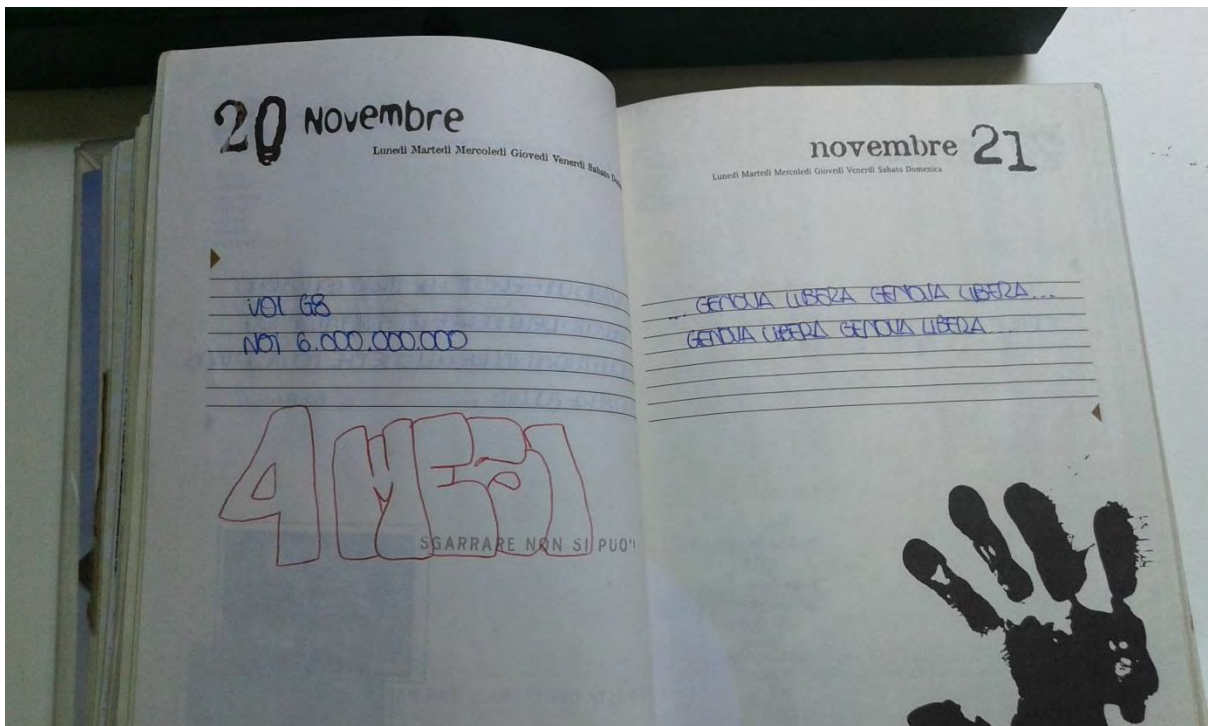 20 Novembre
Lunedì Martedì Mercoledì Giovedì Venerdì Sabato
VOI G8
NOI 6.000.000.000
4 MESI
SGARRARE NON SI PUO'!
novembre 21
Lunedì Martedì Mercoledì Giovedì Venerdì Sabato Domenica
... GENOVA LIBERA GENOVA LIBERA...
GENOVA LIBERA GENOVA LIBERA...